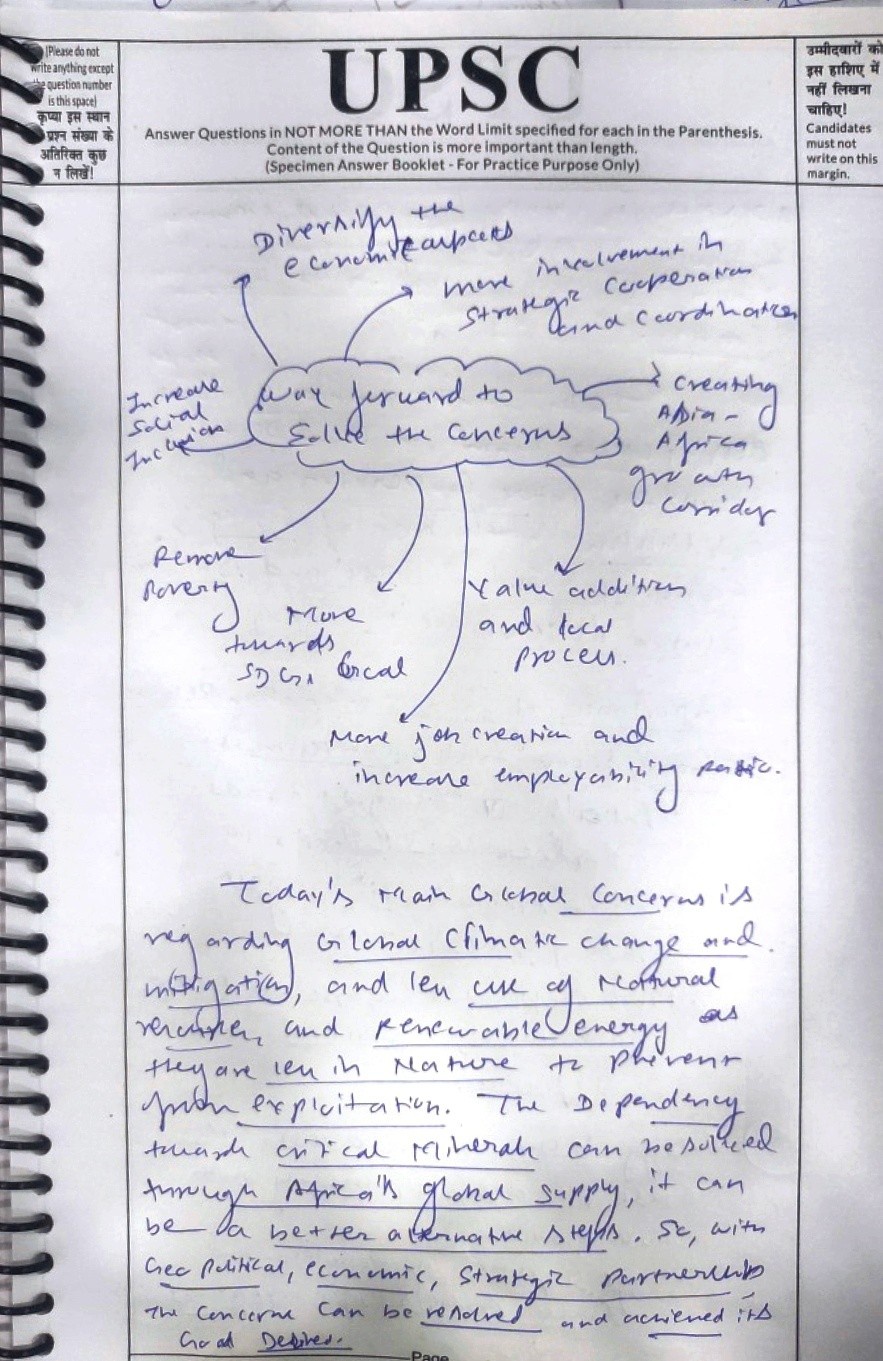 (Please do not
write anything except
the question number
is this space)
कृप्या इस स्थान
प्रश्न संख्या के
अतिरिक्त कुछ
न लिखें!
UPSC
Answer Questions in NOT MORE THAN the Word Limit specified for each in the Parenthesis.
Content of the Question is more important than length.
(Specimen Answer Booklet - For Practice Purpose Only)
उम्मीदवारों को
इस हाशिए में
नहीं लिखना
चाहिए!
Candidates
must not
write on this
margin.
Diversify the
economic aspects
more involvement in
Strategic Cooperation
and Coordination
way forward to
Solve the Concerns
Creating
Asia-
Africa
growth
Corridor
Increase
Social
Inclusion
Remove
Poverty
More
towards
SDGs
Value addition
and local
process.
More job creation and
increase employability
Today's Main Global Concerns is
regarding Global Climatic change and
mitigation, and less use of Natural
resources, and Renewable energy as
they are less in Nature to prevent
from exploitation. The Dependency
towards critical Minerals can be solved
through Africa's global supply, it can
be a better alternative steps. So, with
Geo political, economic, strategic partnership
The concerns can be resolved and achieved its
Good Desires.
Page